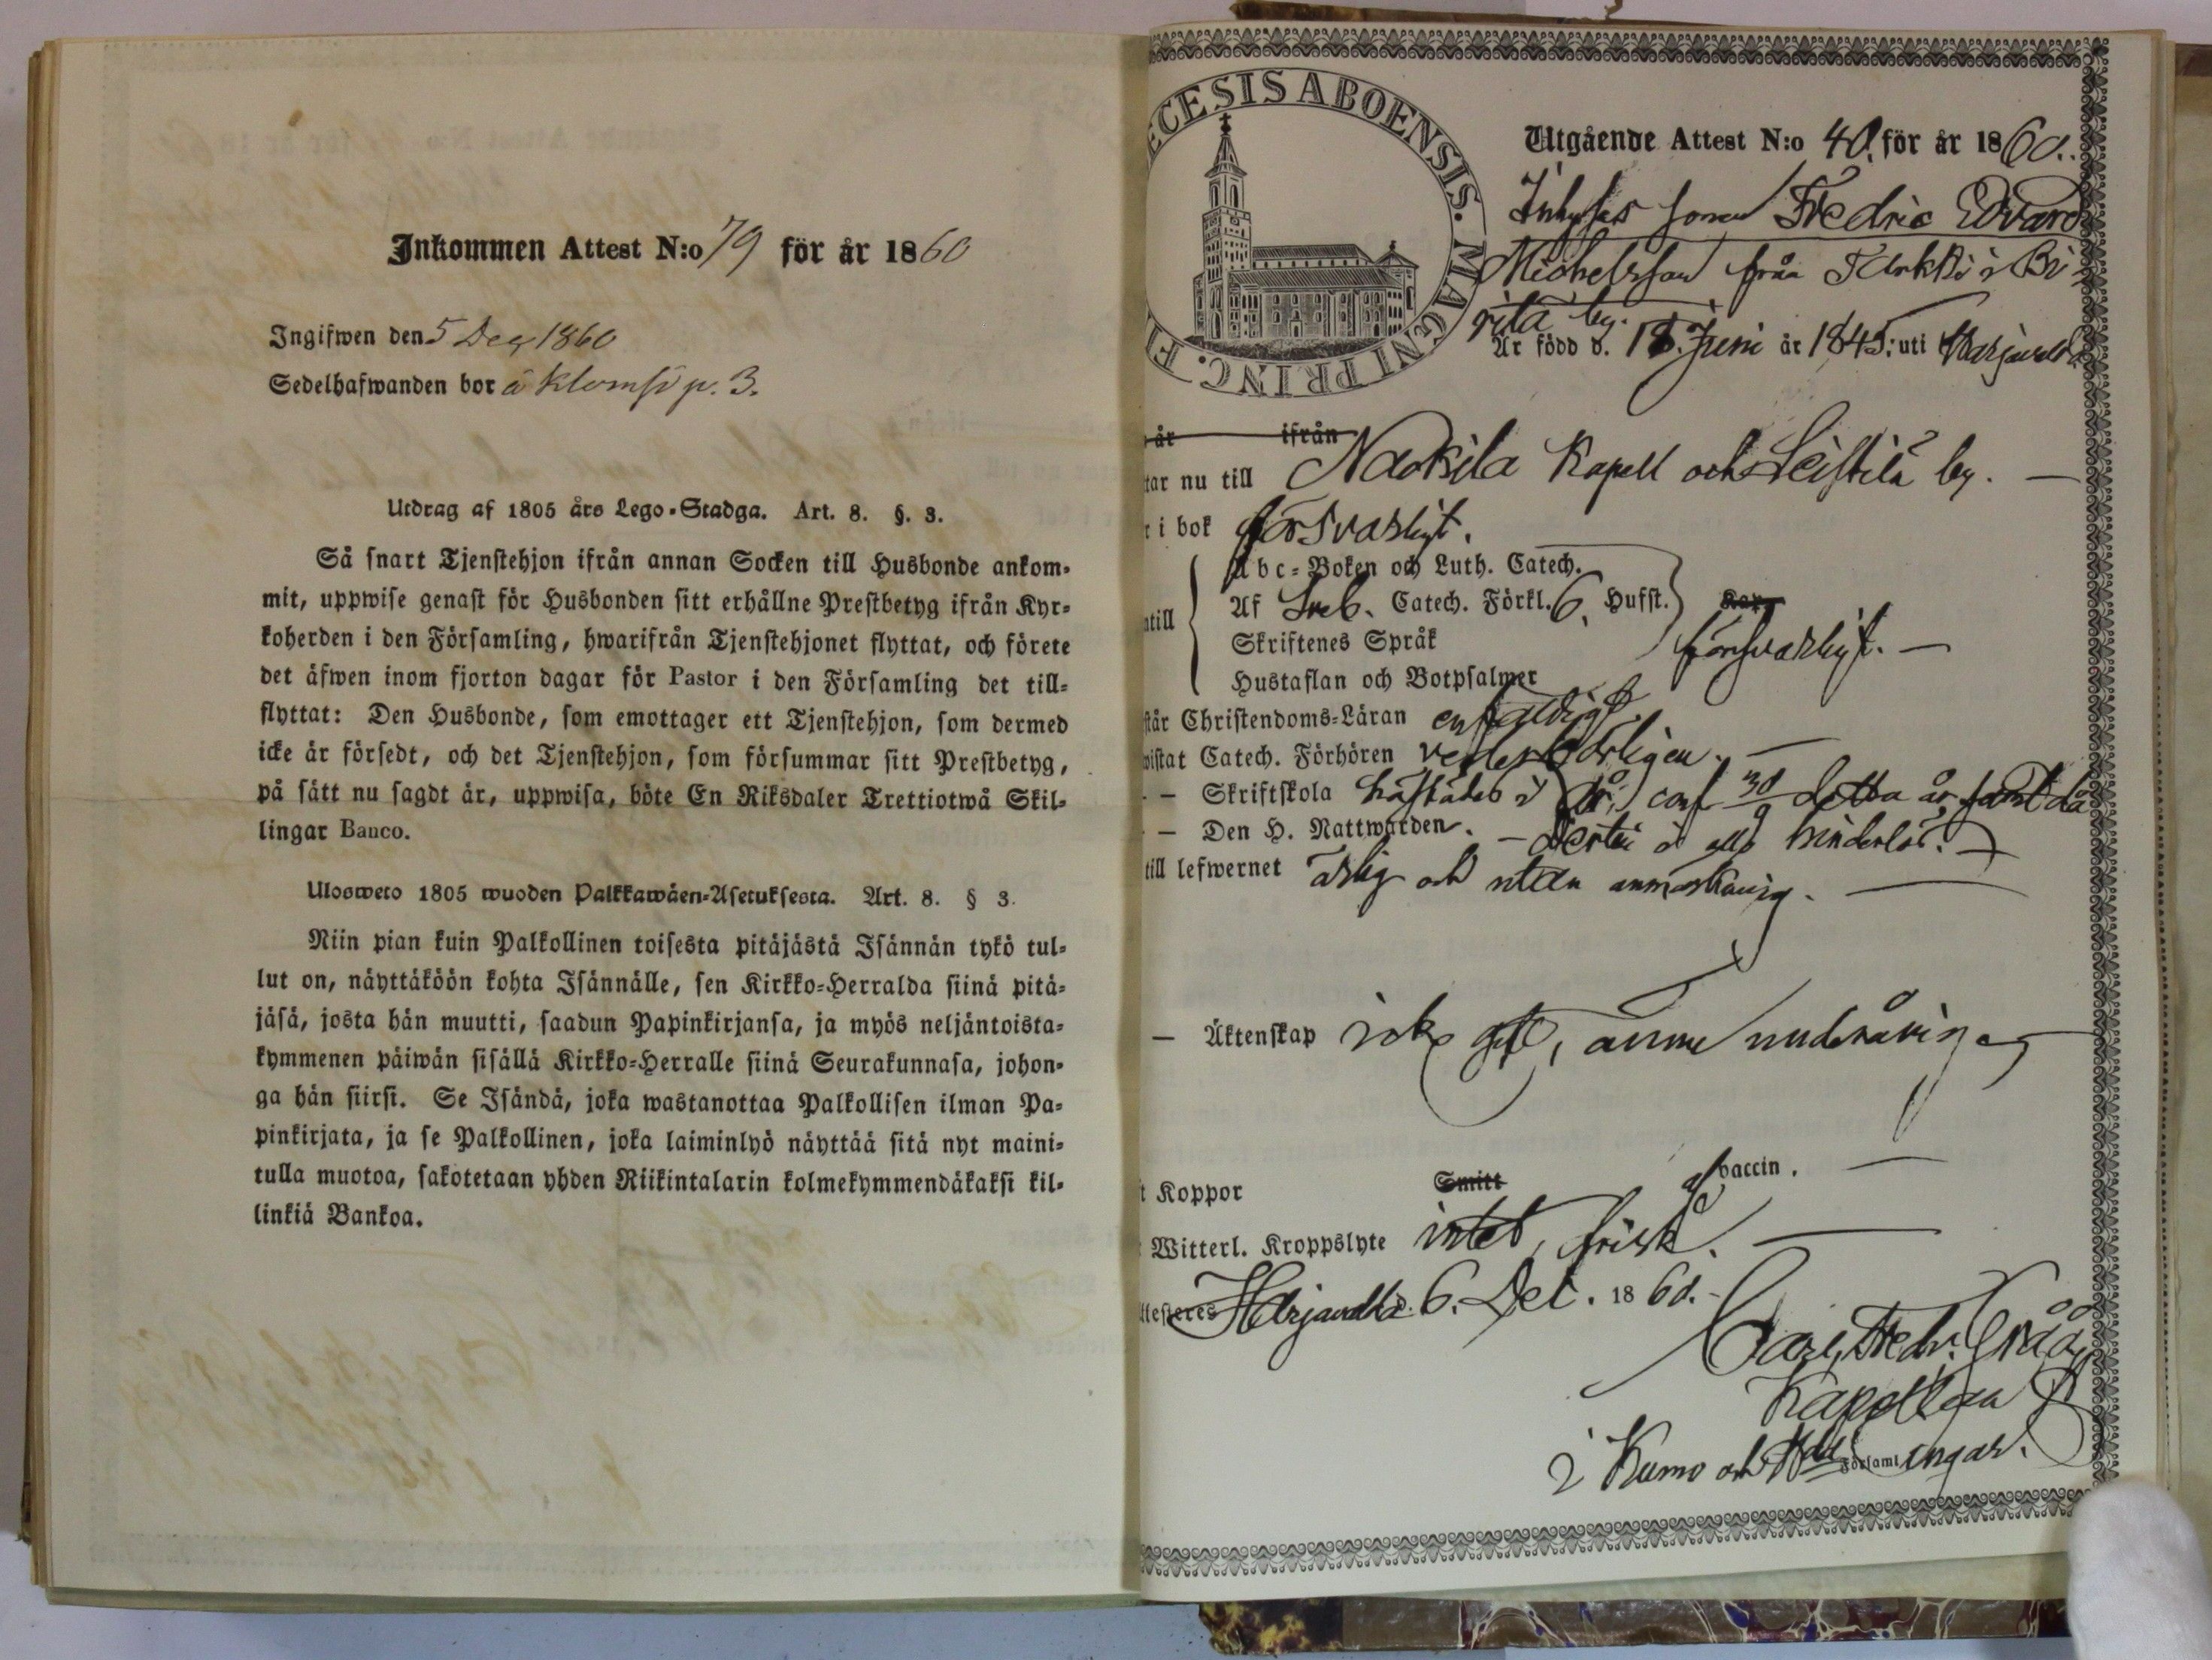 Inkommen Attest N:o 79 för år 1860
Ingifwen den 5 Dec 1860
Sedelhafwanden bor å p. 3.
Utdrag af 1805 års Lego-Stadga. Art. 8. §. 3.
Så snart Tjenstehjon ifrån annan Socken till Husbonde ankom-
mit, uppwise genast för Husbonden sitt erhållne Prestbetyg ifrån Kyr-
koherden i den Församling, hwarifrån Tjenstehjonet flyttat, och förete
det äfwen inom fjorton dagar för Pastor i den Församling det till-
flyttat: Den Husbonde, som emottager ett Tjenstehjon, som dermed
icke är försedt, och det Tjenstehjon, som försummar sitt Prestbetyg,
på sätt nu sagdt är, uppwisa, böte En Riksdaler Trettiotwå Skil-
lingar Banco.
Ulosweto 1805 wuoden Palkkawäen-Asetuksesta. Art. 8. § 3.
Niin pian kuin Palkollinen toisesta pitäjästä Isännän tykö tul-
lut on, näyttäköön kohta Isännälle, sen Kirkko-Herralda siinä pitä-
jäsä, josta hän muutti, saadun Papinkirjansa, ja myös neljäntoista-
kymmenen päiwän sisällä Kirkko-Herralle siinä Seurakunnasa, johon-
ga hän siirsi. Se Isändä, joka wastanottaa Palkollisen ilman Pa-
pinkirjata, ja se Palkollinen, joka laiminlyö näyttää sitä nyt maini-
tulla muotoa, sakotetaan yhden Riikintalarin kolmekymmendäkaksi kil-
linkiä Bankoa.
ECESIS ABOENSIS. MAGNI PRINC. F
Utgående Attest N:o 40. för år 1860.
Inhyses sonen Fredric Edvard
Michelsson från i Bi-
rita by.
Är född d. 18. Juni år 1845. uti Harjavalta
år ifrån
tar nu till Nackila Kapell och Leistilä by. —
r i bok försvarligt.
Abc-Boken och Luth. Catech.
ntill Af Sveb. Catech. Förkl. 6. Husst.
Skriftenes Språk försvarligt. —
Hustaflan och Botpsalmer
står Christendoms-Läran enfaldigt
wistat Catech. Förhören vederbörligen. —
- — Skriftskola i år, conf 30/9 detta år samt då
- — Den H. Nattwarden. — är all hinderlös. —
till lefwernet ärlig och utan anmärkning. —
— Äktenskap icke gift,
t Koppor Smitt af vaccin. —
Witterl. Kroppslyte intet, frisk. —
ttesteres Harjavalta d. 6. Dec. 1860.
Carl Fredr. Gråå
Kapellan
i Kumo och Församlingar.